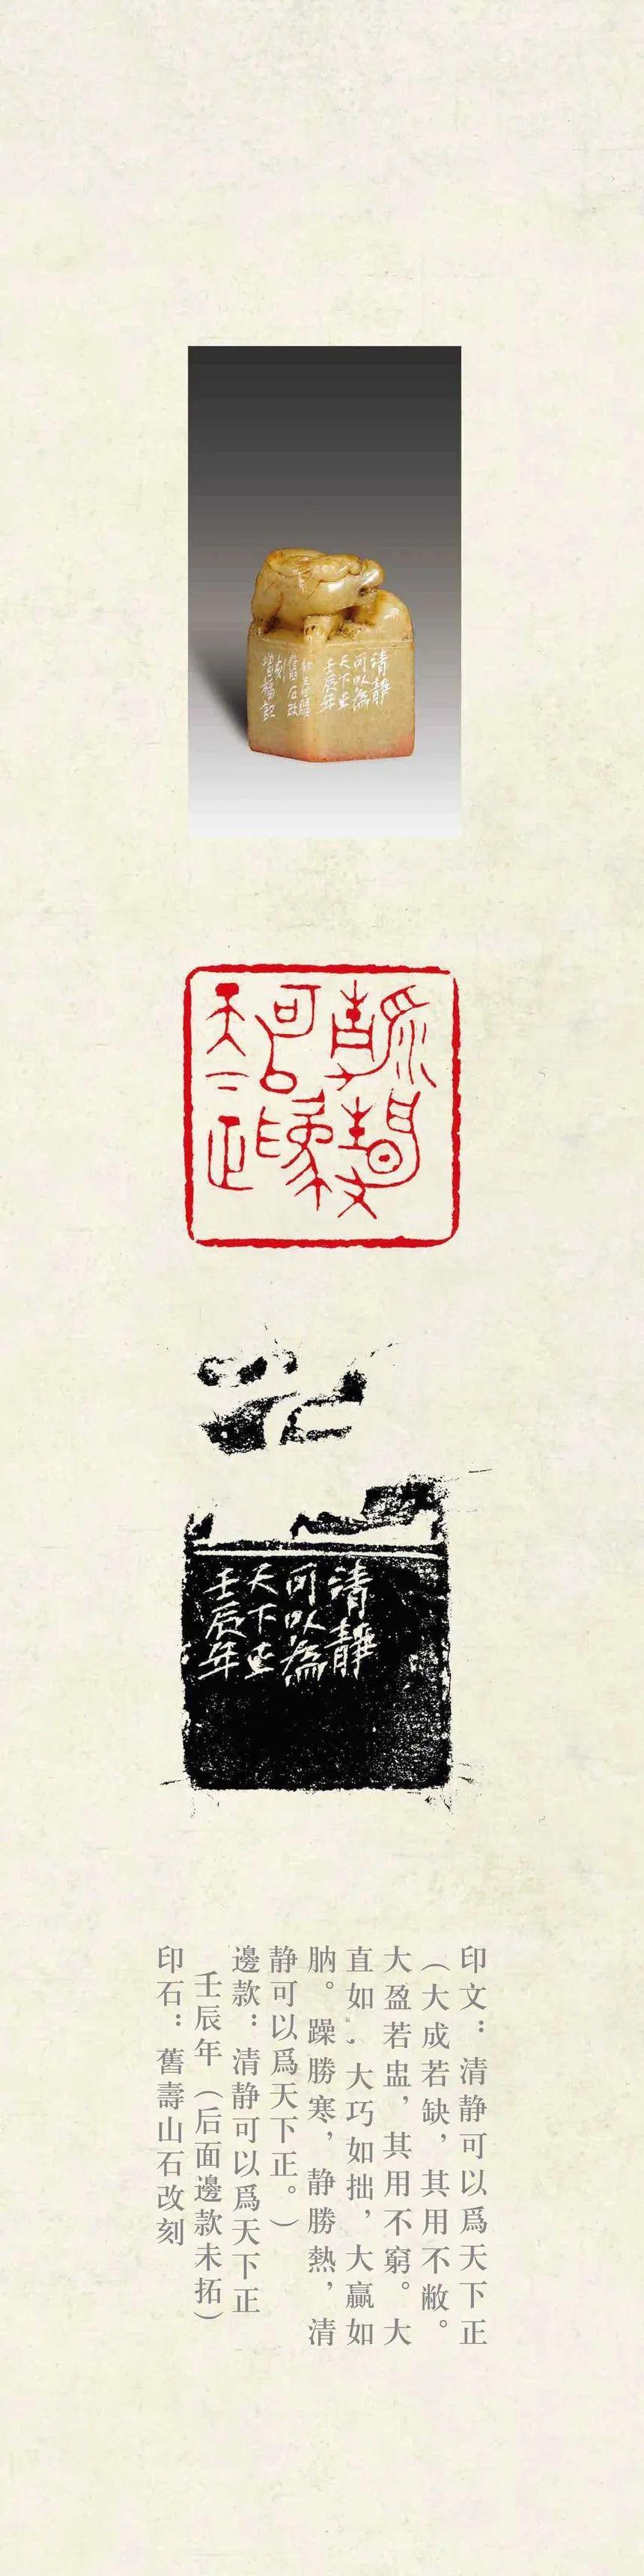 清靜
可以為
天下正
壬辰年
舊石改
刻
清靜
可以為
天下正
壬辰年
印文：清静可以爲天下正
（大成若缺，其用不敝。
大盈若盅，其用不窮。大
直如，大巧如拙，大贏如
肭。躁勝寒，静勝熱，清
静可以爲天下正。）
邊款：清静可以爲天下正
壬辰年（后面邊款未拓）
印石：舊壽山石改刻